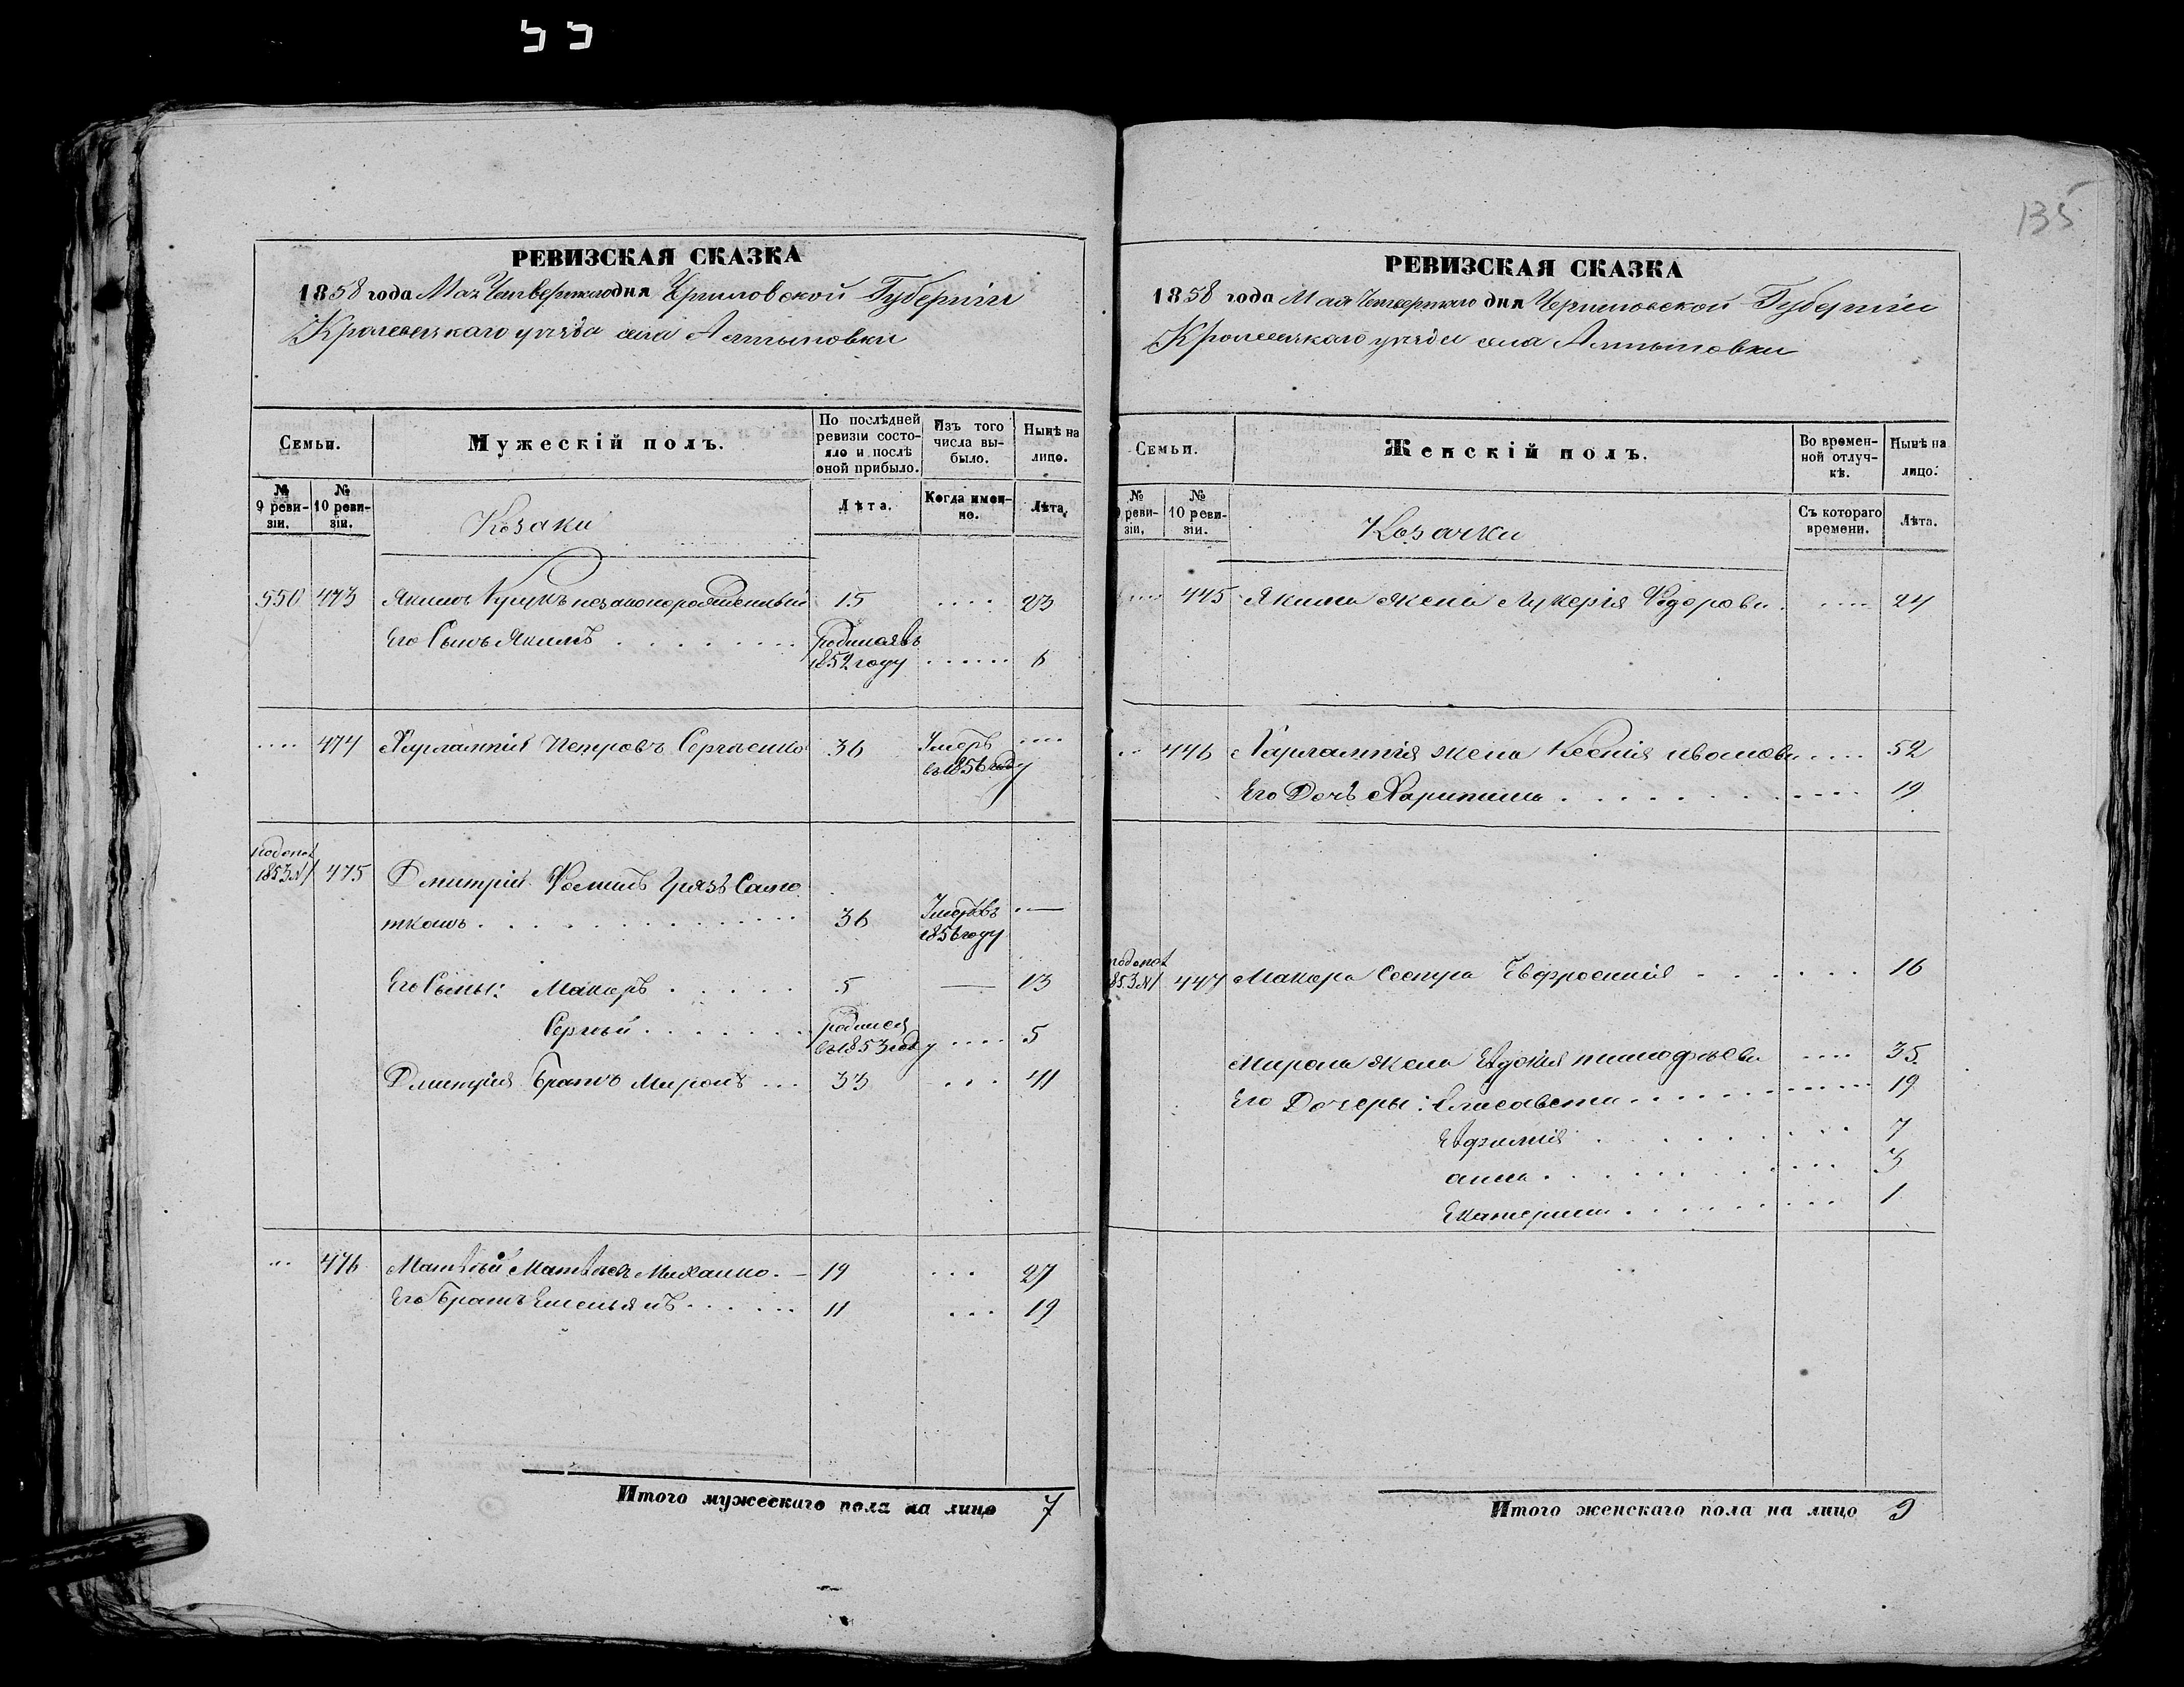 135
РЕВИЗСКАЯ СКАЗКА
1858 года Мая Четвертаго дня Черниговской Губерніи
Кролевецкаго уѣзда села Алтыновки
Семьи.
Мужескій полъ.
По послѣдней ревизіи состояло и послѣ оной прибыло.
Изъ того числа выбыло.
Нынѣ на лицо.
№ 9 ревизіи.
№ 10 ревизіи.
Козаки
Лѣта.
Когда именно.
Лѣта.
550 473 Якимъ незаконорожденный 15 .... 23
Его Сынъ Якимъ . . . . . . . родился въ 1852 году ...... 6
.... 474 Харлампій Петровъ Сергѣенко 36 Умеръ въ 1856 году ....
1853 № 1 475 Дмитрій Фоминъ
36 Умеръ въ 1856 году —
Его Сыны: Макаръ . . . . . 5 — 13
Сергѣй . . . . . . . родился въ 1853 году .... 5
Дмитрія Братъ Миронъ ... 33 ... 41
... 476 Матвѣй Матвѣевъ Михаленко. — 19 ... 27
Его Братъ Емельянъ . . . . . . 11 ... 19
Итого мужескаго пола на лицо 7
РЕВИЗСКАЯ СКАЗКА
1858 года Мая Четвертаго дня Черниговской Губерніи
Кролевецкаго уѣзда села Алтыновки
Семьи.
Женскій полъ.
Во временной отлучкѣ.
Нынѣ на лицо.
№ 9 ревизіи.
№ 10 ревизіи.
Козачки
Съ котораго времени.
Лѣта.
.... 445 Якима жена Лукерія Федорова. .... 24
.. 446 Харлампія жена Ксенія Иванова .... 52
Его Дочь Харитина . . . . . . . . . . . 19
1853 № 1 447 Макара Сестра Евфросинія . . . . . . 16
Мирона жена Евдокія Тимофѣева .... 35
Его Дочери: Елисавета . . . . . . . . . . 19
Евфимія . . . . . . . . . 7
Анна . . . . . . . . . . . 3
Екатерина . . . . . . . . . 1
Итого женскаго пола на лицо 9